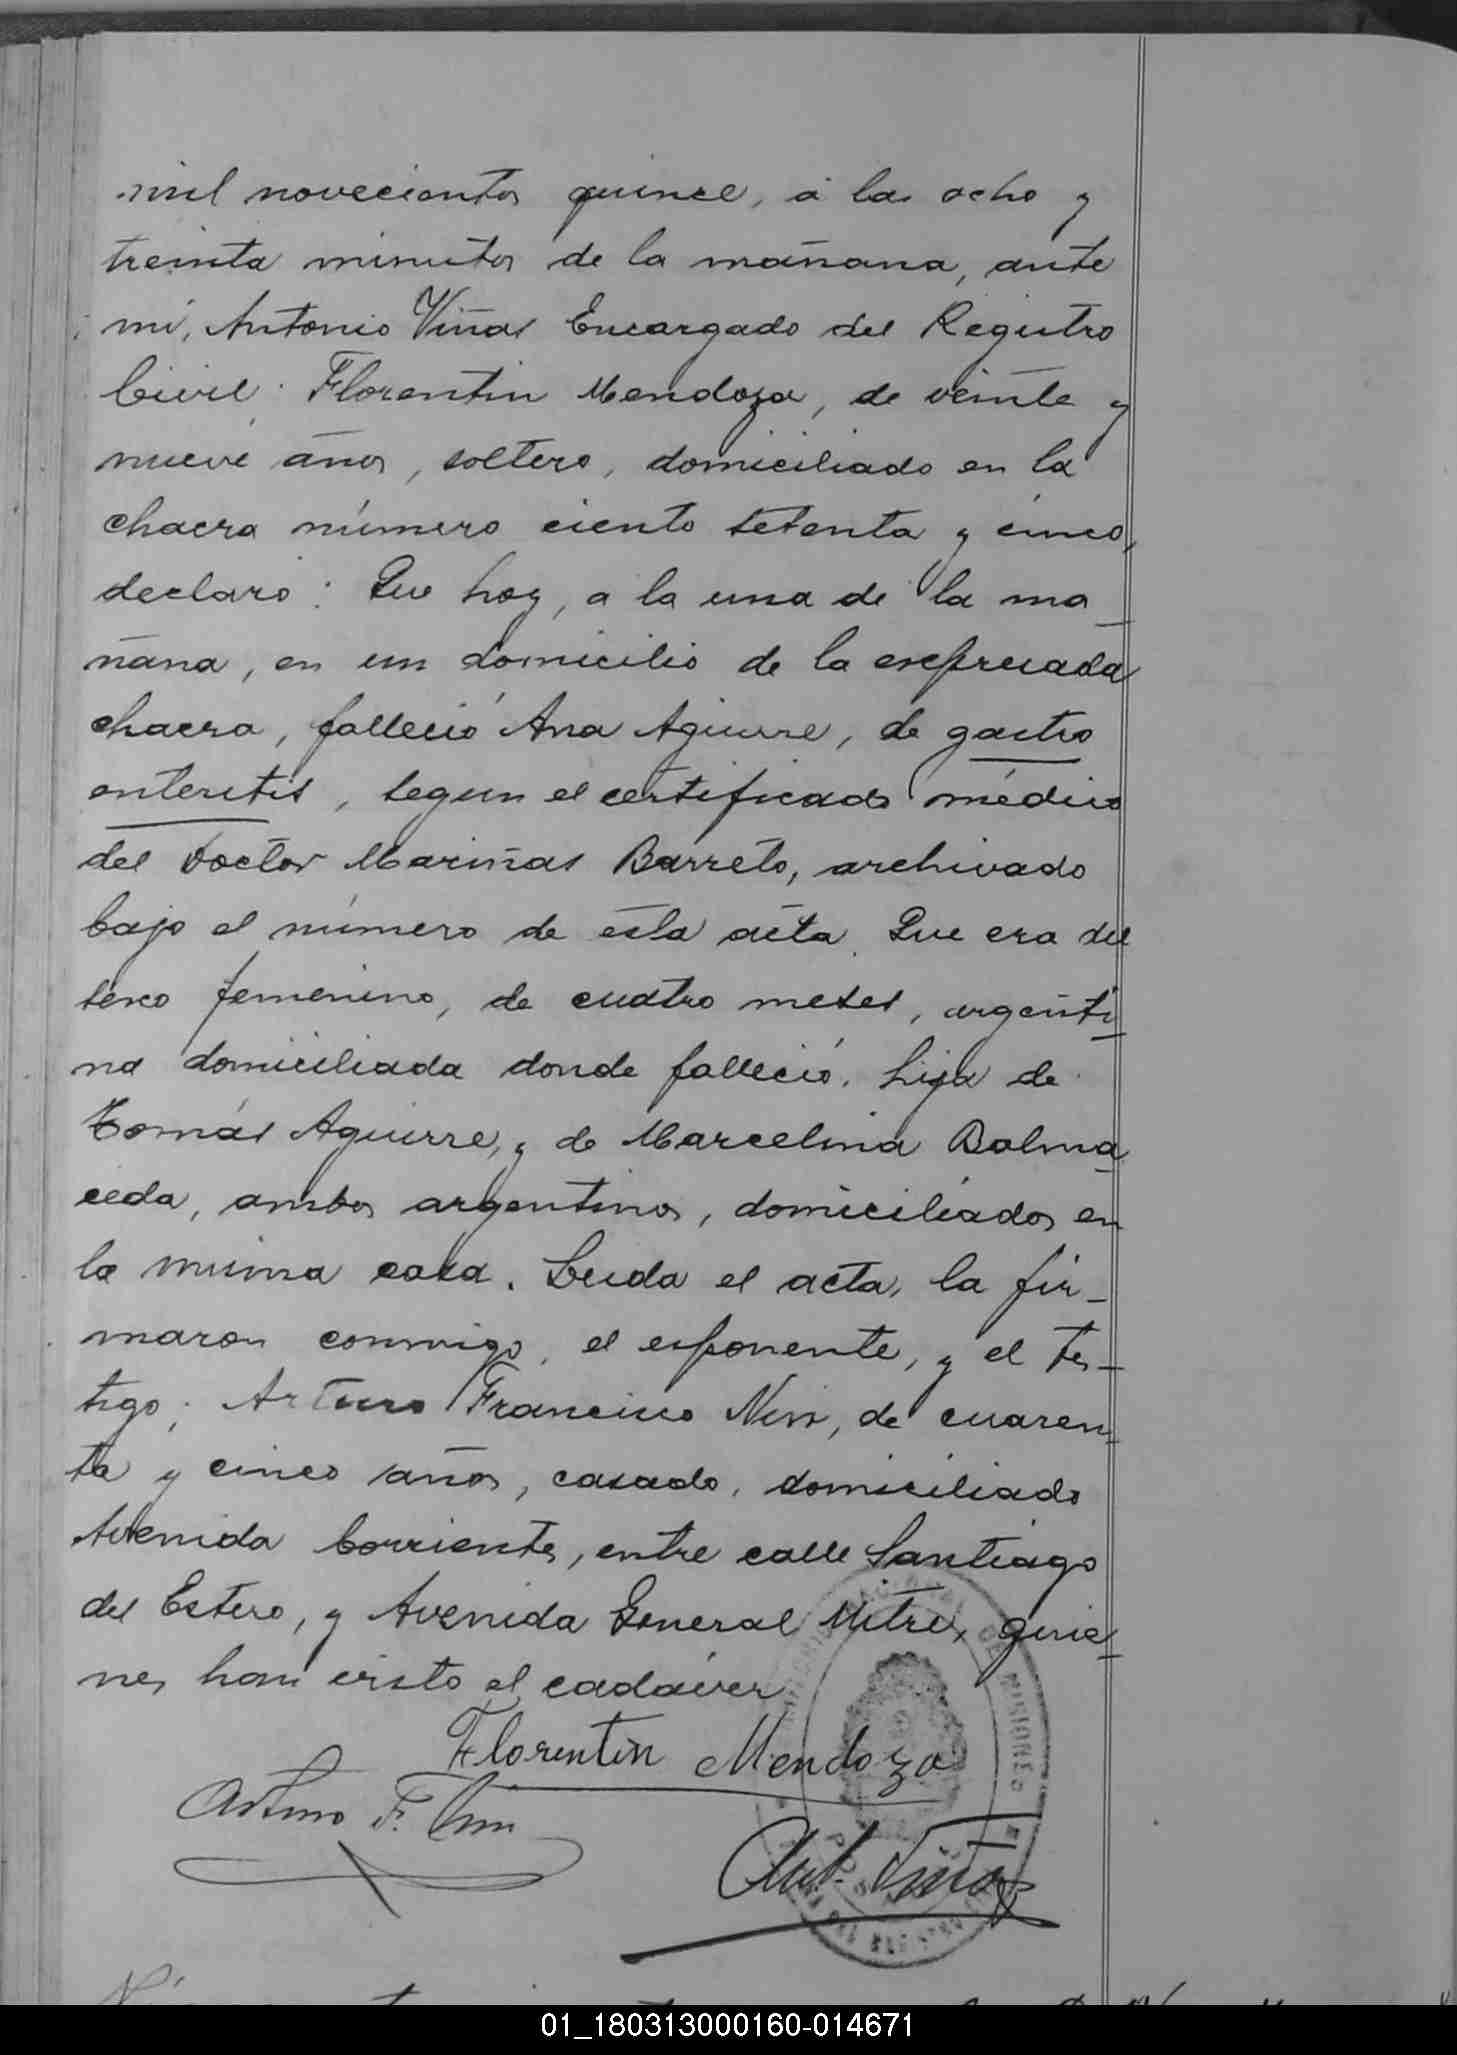 mil novecientos quince, á las ocho y
treinta minutos de la mañana, ante
mí, Antonio Viñas Encargado del Registro
Civil: Florentin Mendoza, de veinte y
nueve años, soltero, domiciliado en la
chacra número ciento setenta y cinco,
declaró: Que hoy, a la una de la ma_
ñana, en un domicilio de la expresada
chacra, falleció Ana Aguirre, de gastro
enteritis, segun el certificado médico
del Doctor Mariñas Barreto, archivado
bajo el número de esta acta. Que era del
sexo femenino, de cuatro meses, argenti_
na domiciliada donde falleció, hija de
Tomás Aguirre, y de Marcelina Balma_
ceda, ambos argentinos, domiciliados en
la misma casa. Leida el acta, la fir_
maron conmigo, el exponente, y el tes_
tigo; Arturo Francisco Nin, de cuaren_
ta y cinco años, casado, domiciliado
Avenida Corrientes, entre calle Santiago
del Estero, y Avenida General Mitre, quie_
nes han visto el cadáver
Florentin Mendoza
Arturo F. Nin
Ant. Viñas
MISIONES
01_180313000160-014671